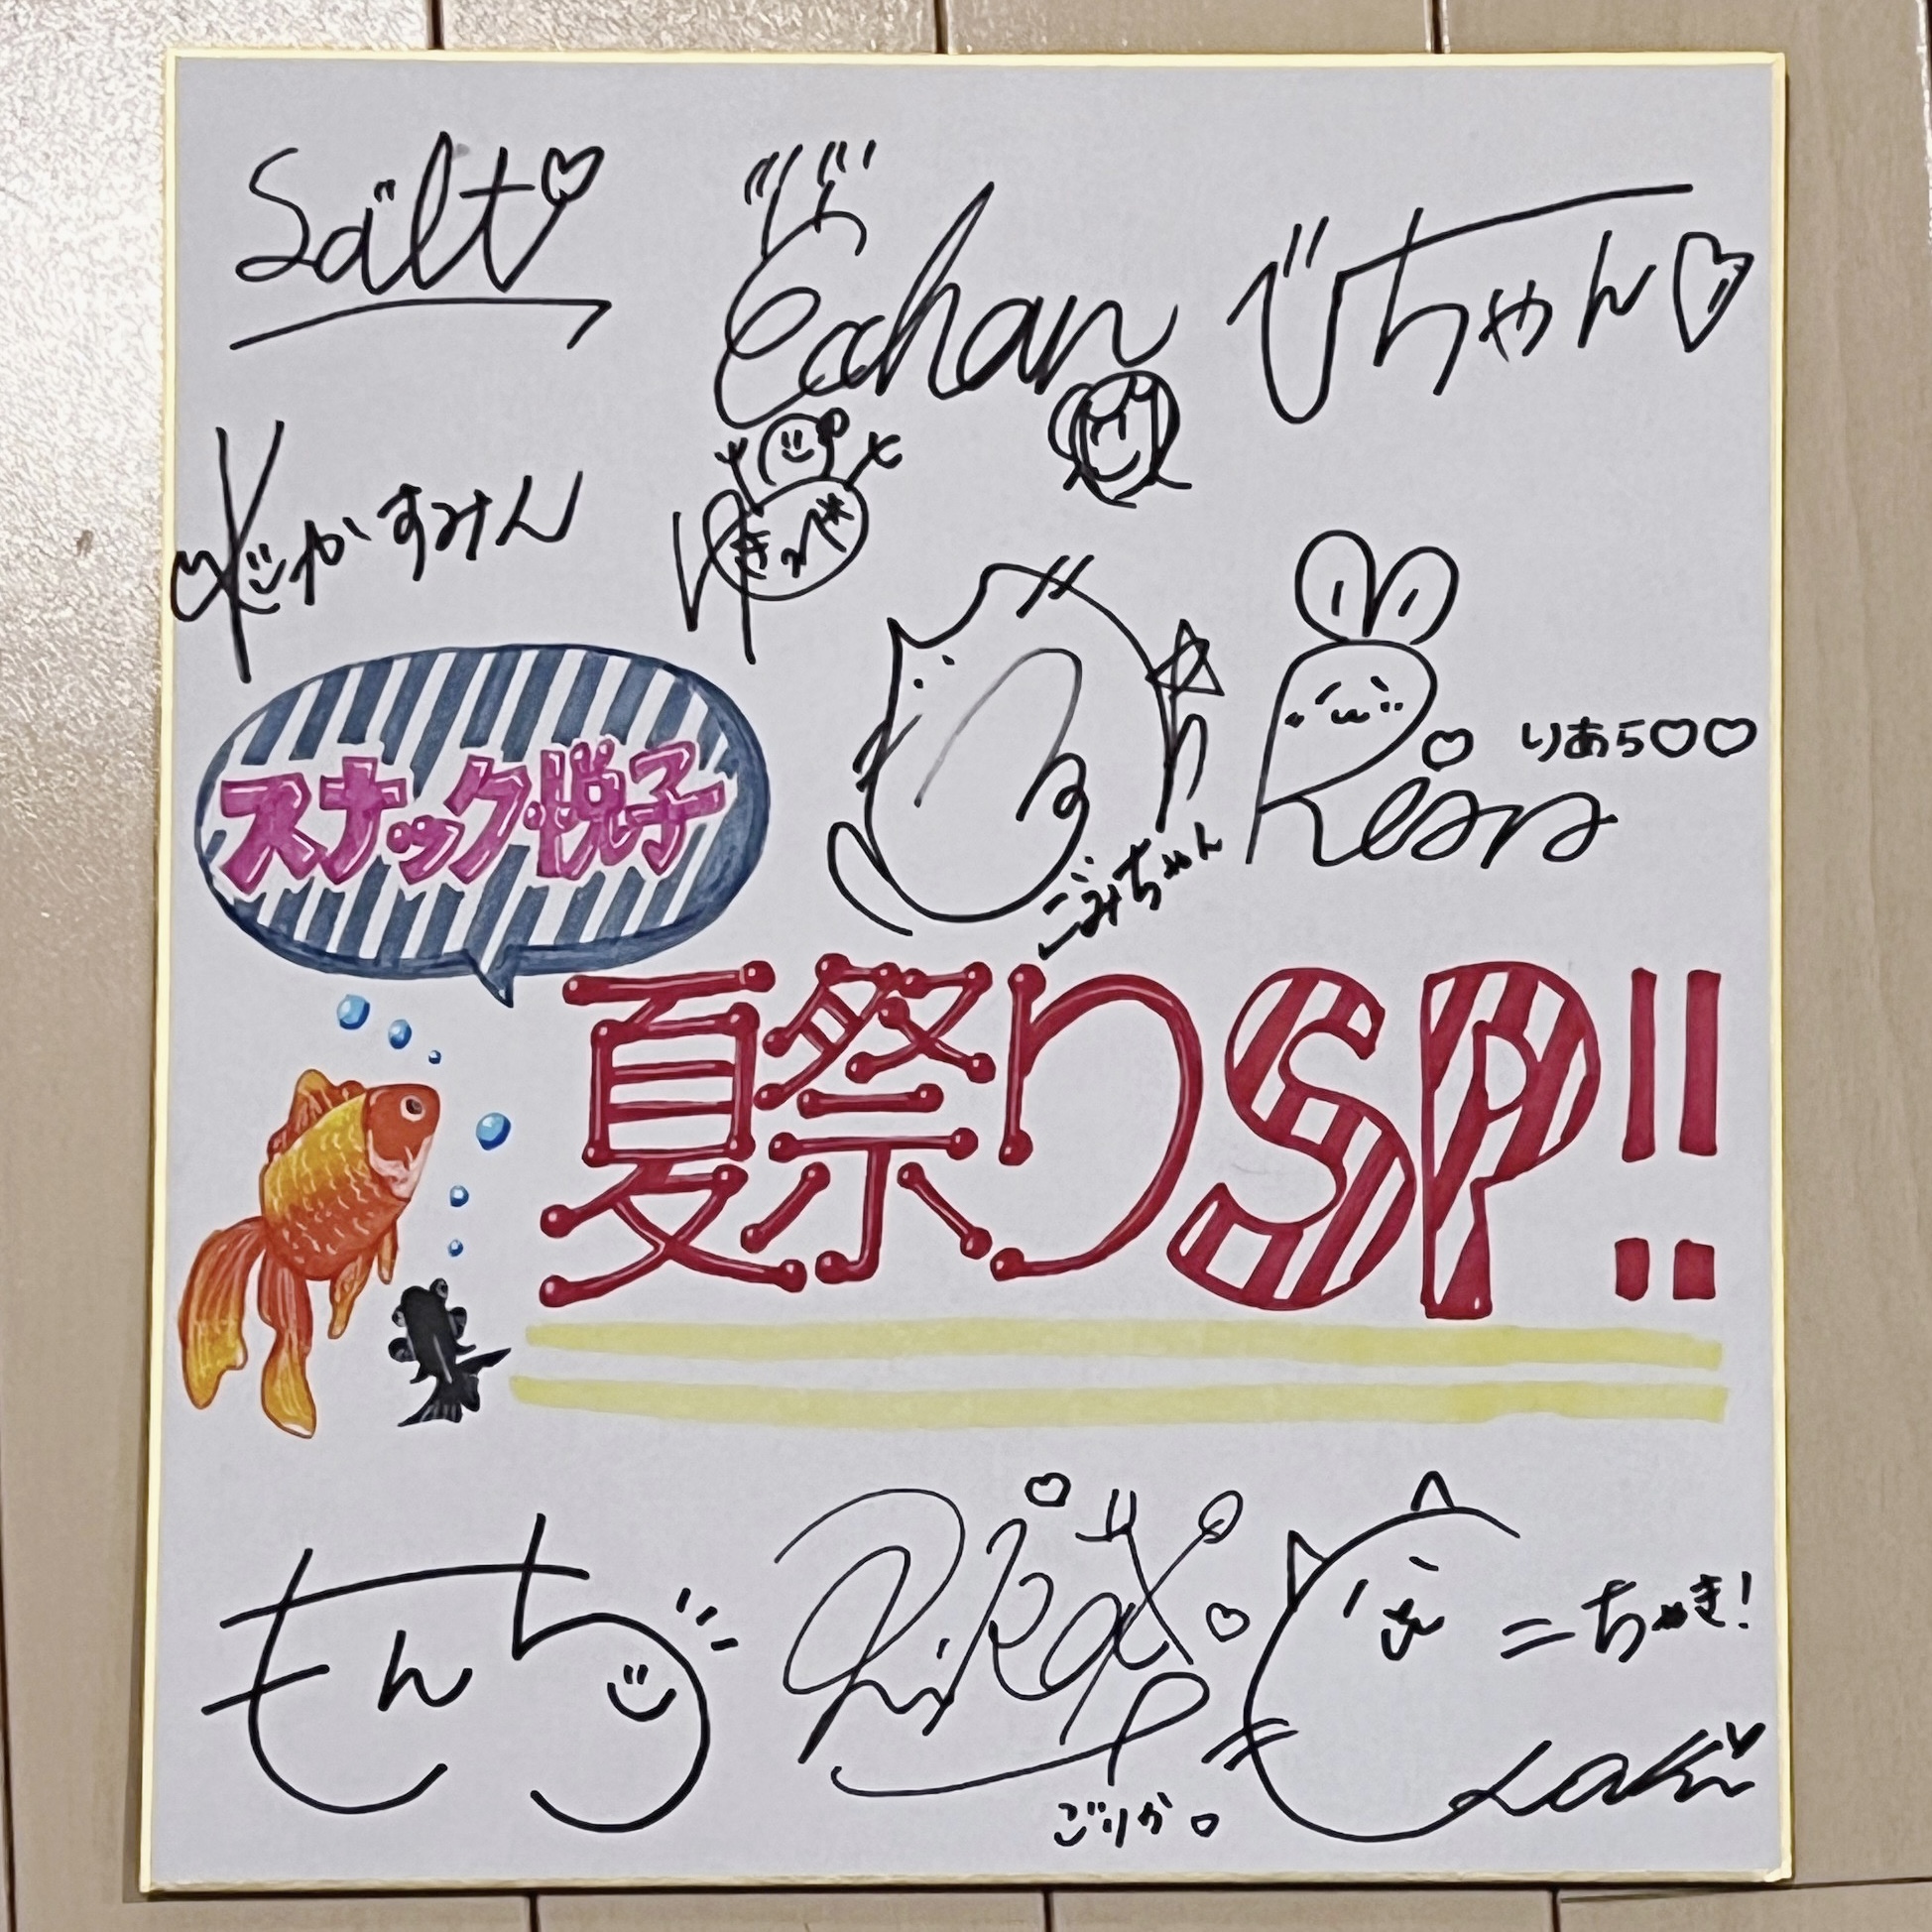 Salt
びちゃん
かすみん
ゆきっぺ
りあら
Riara
ごみちゃん
スナック悦子
夏祭りSP!!
もんち
Rika
ごりか
ニちゃき!